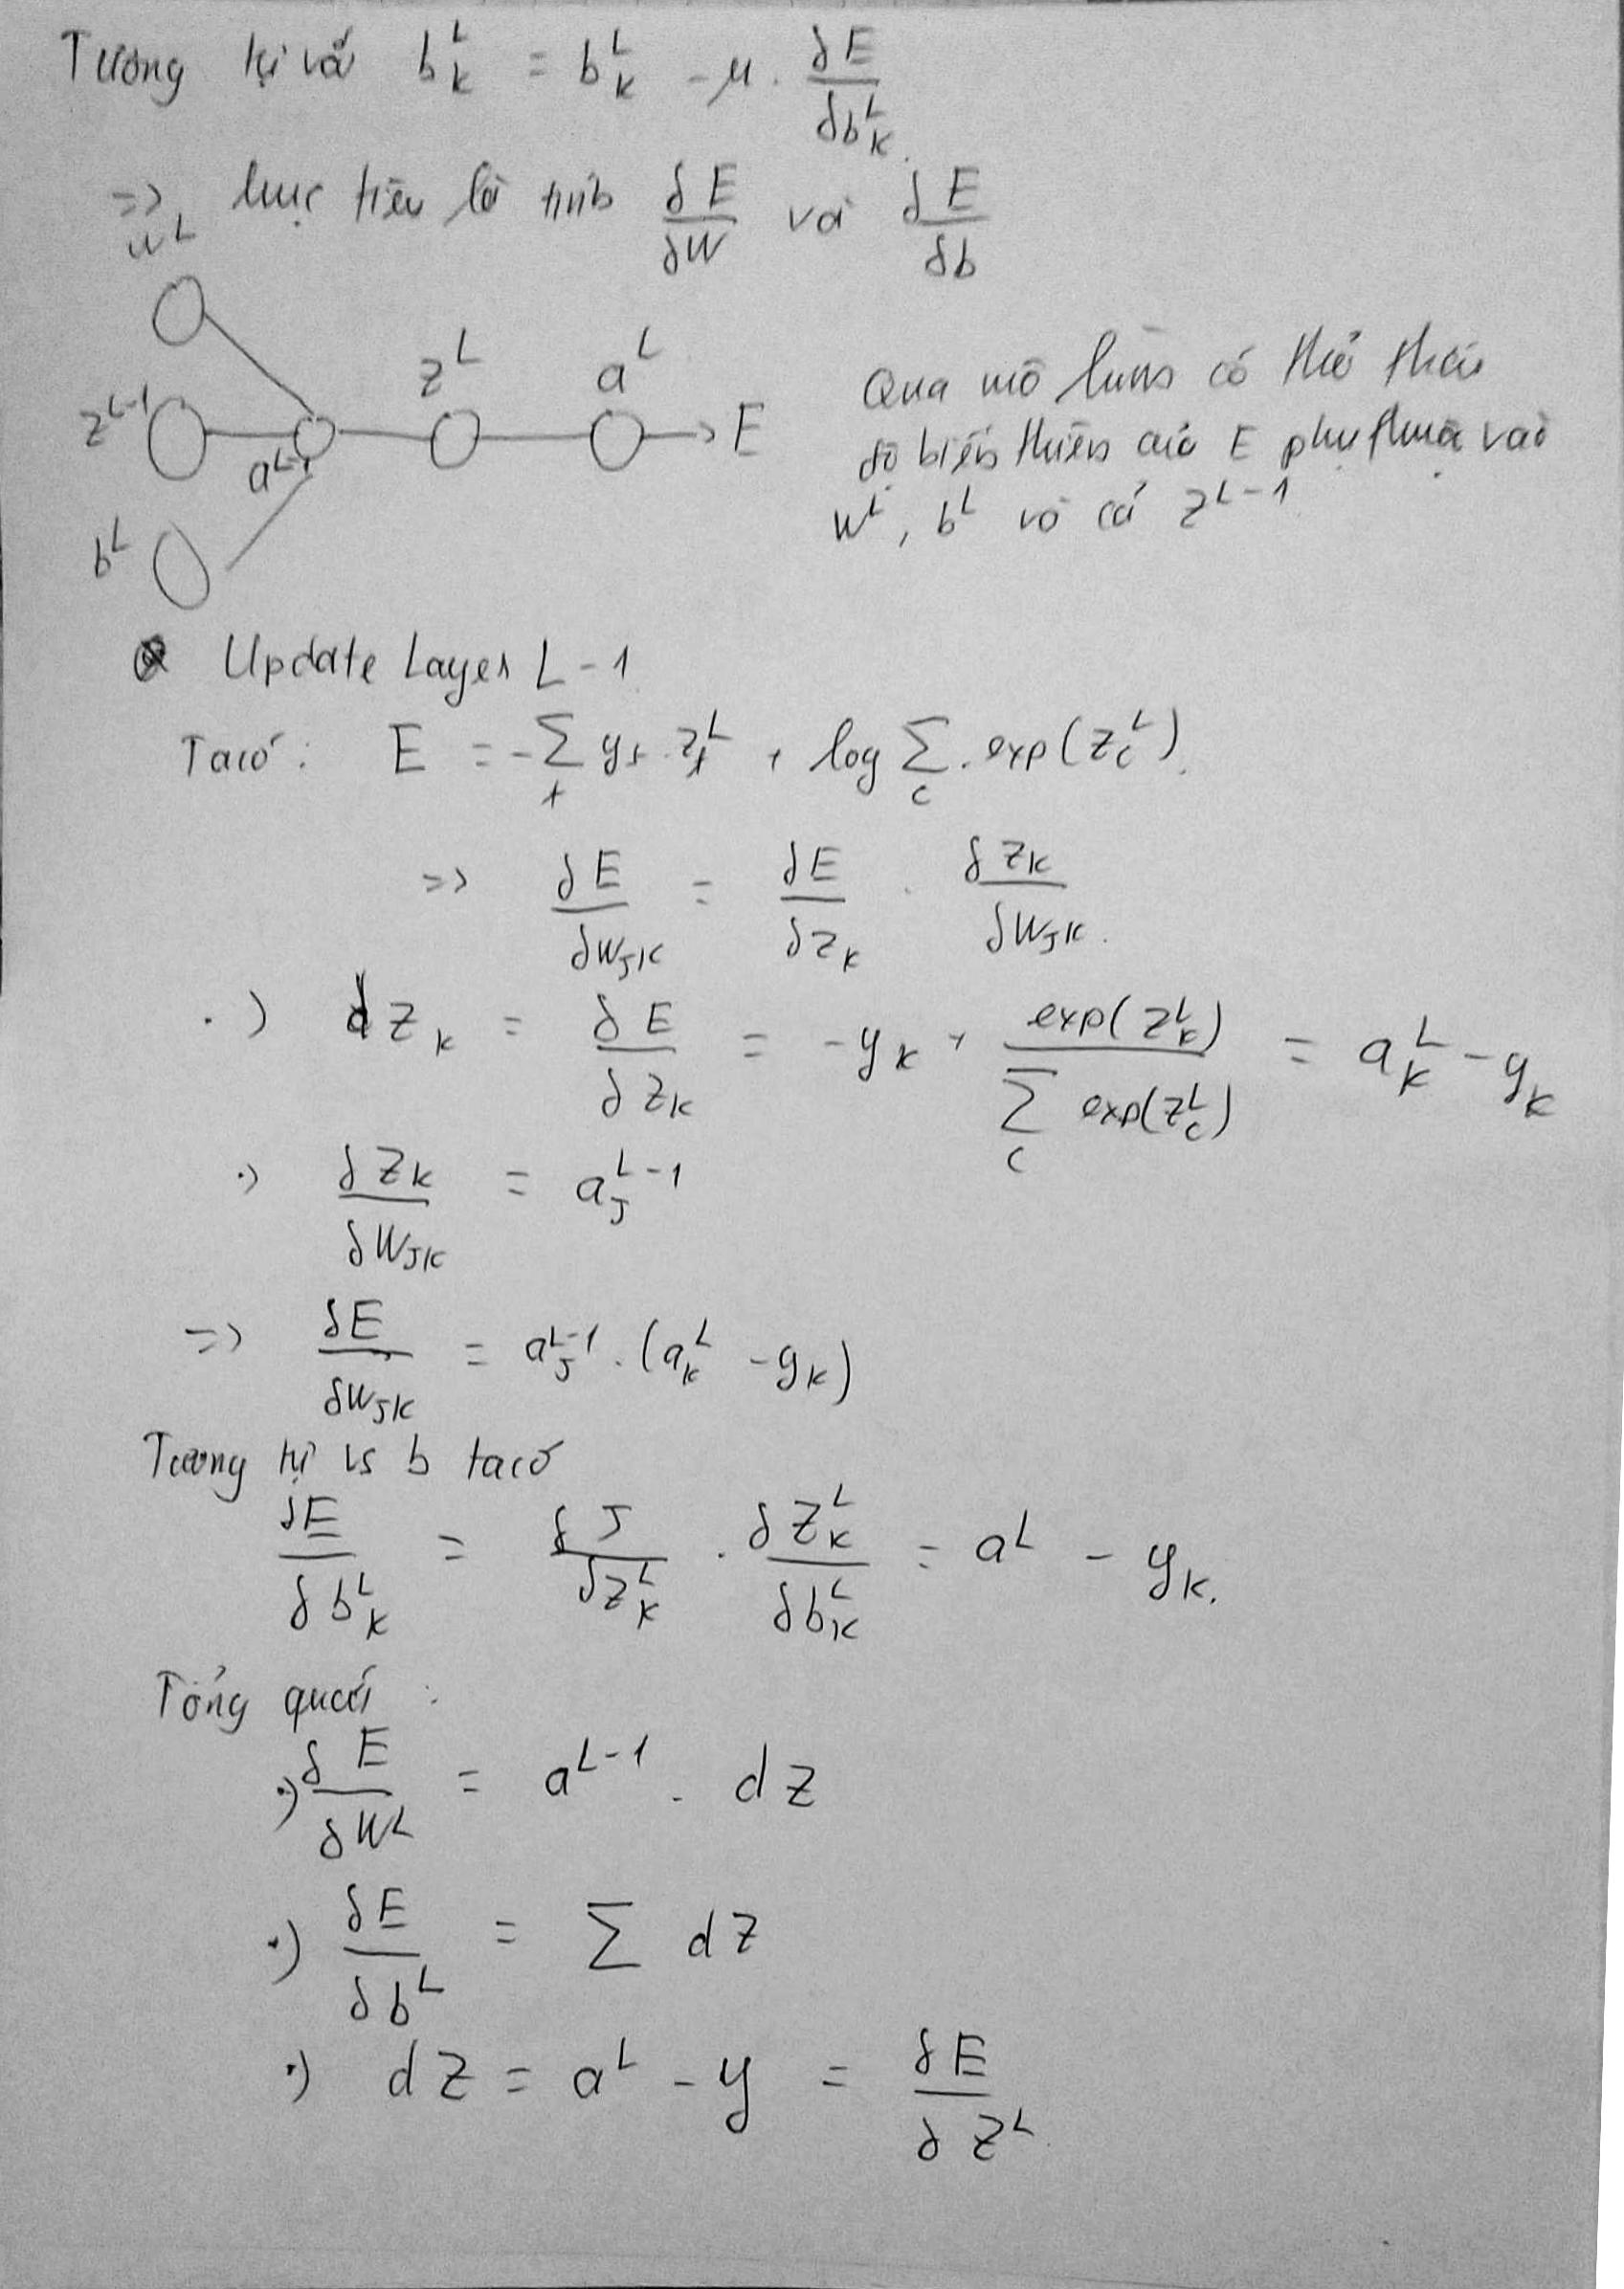 Tương tự với b_k^L = b_k^L - μ . δE/δb_k^L.
=> mục tiêu là tính δE/δW và δE/δb
w^L
z^L a^L
z^{L-1} a^{L-1} E
b^L
Qua mô hình có thể thấy
độ biến thiên của E phụ thuộc vào
w^L, b^L và cả z^{L-1}
Update Layer L-1
Ta có: E = -∑ y z^L + log ∑_c . exp(z_c^L).
=> δE/δw_{JK} = δE/δz_K . δz_K/δw_{JK}.
.) dz_K = δE/δz_K = -y_K + exp(z_K^L)/∑_c exp(z_c^L) = a_K^L - y_K
.) δz_K/δw_{JK} = a_J^{L-1}
=> δE/δw_{JK} = a_J^{L-1} . (a_K^L - y_K)
Tương tự vs b ta có
δE/δb_K^L = δJ/δz_K^L . δz_K^L/δb_K^L = a^L - y_K.
Tổng quát :
.) δE/δW^L = a^{L-1} . dz
.) δE/δb^L = ∑ dz
.) dz = a^L - y = δE/δz^L.